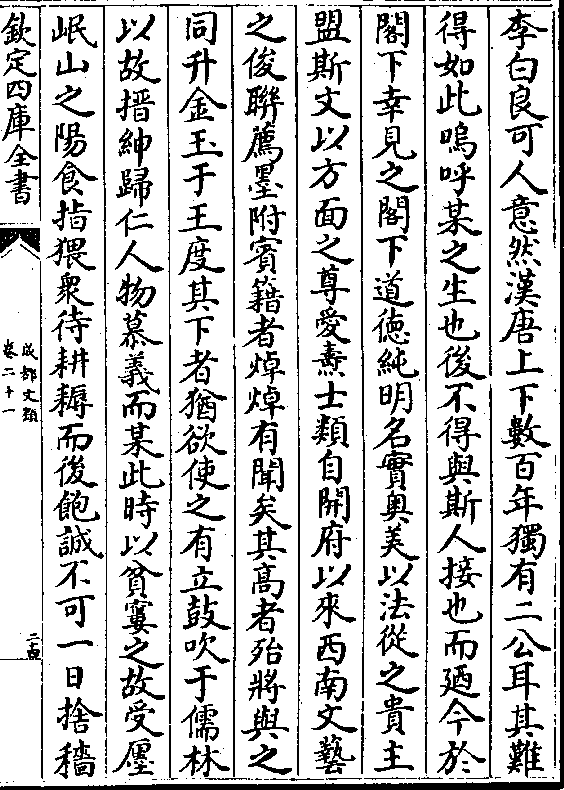 李白良可人意然漢唐上下數百年獨有二公耳其難
得如此嗚呼某之生也後不得與斯人接也而廼今於
閣下幸見之閣下道德純明名實奥美以法從之貴主
盟斯文以方面之尊愛燾士類自開府以來西南文藝
之俊聯薦墨附賓籍者焯焯有聞矣其髙者殆將與之
同升金玉于王度其下者猶欲使之有立鼓吹于儒林
以故搢紳歸仁人物慕義而某此時以貧窶之故受廛
岷山之陽食指猥衆待耕耨而後飽誠不可一日捨穡
欽定四庫全書
成都文類
卷二十一
二十四